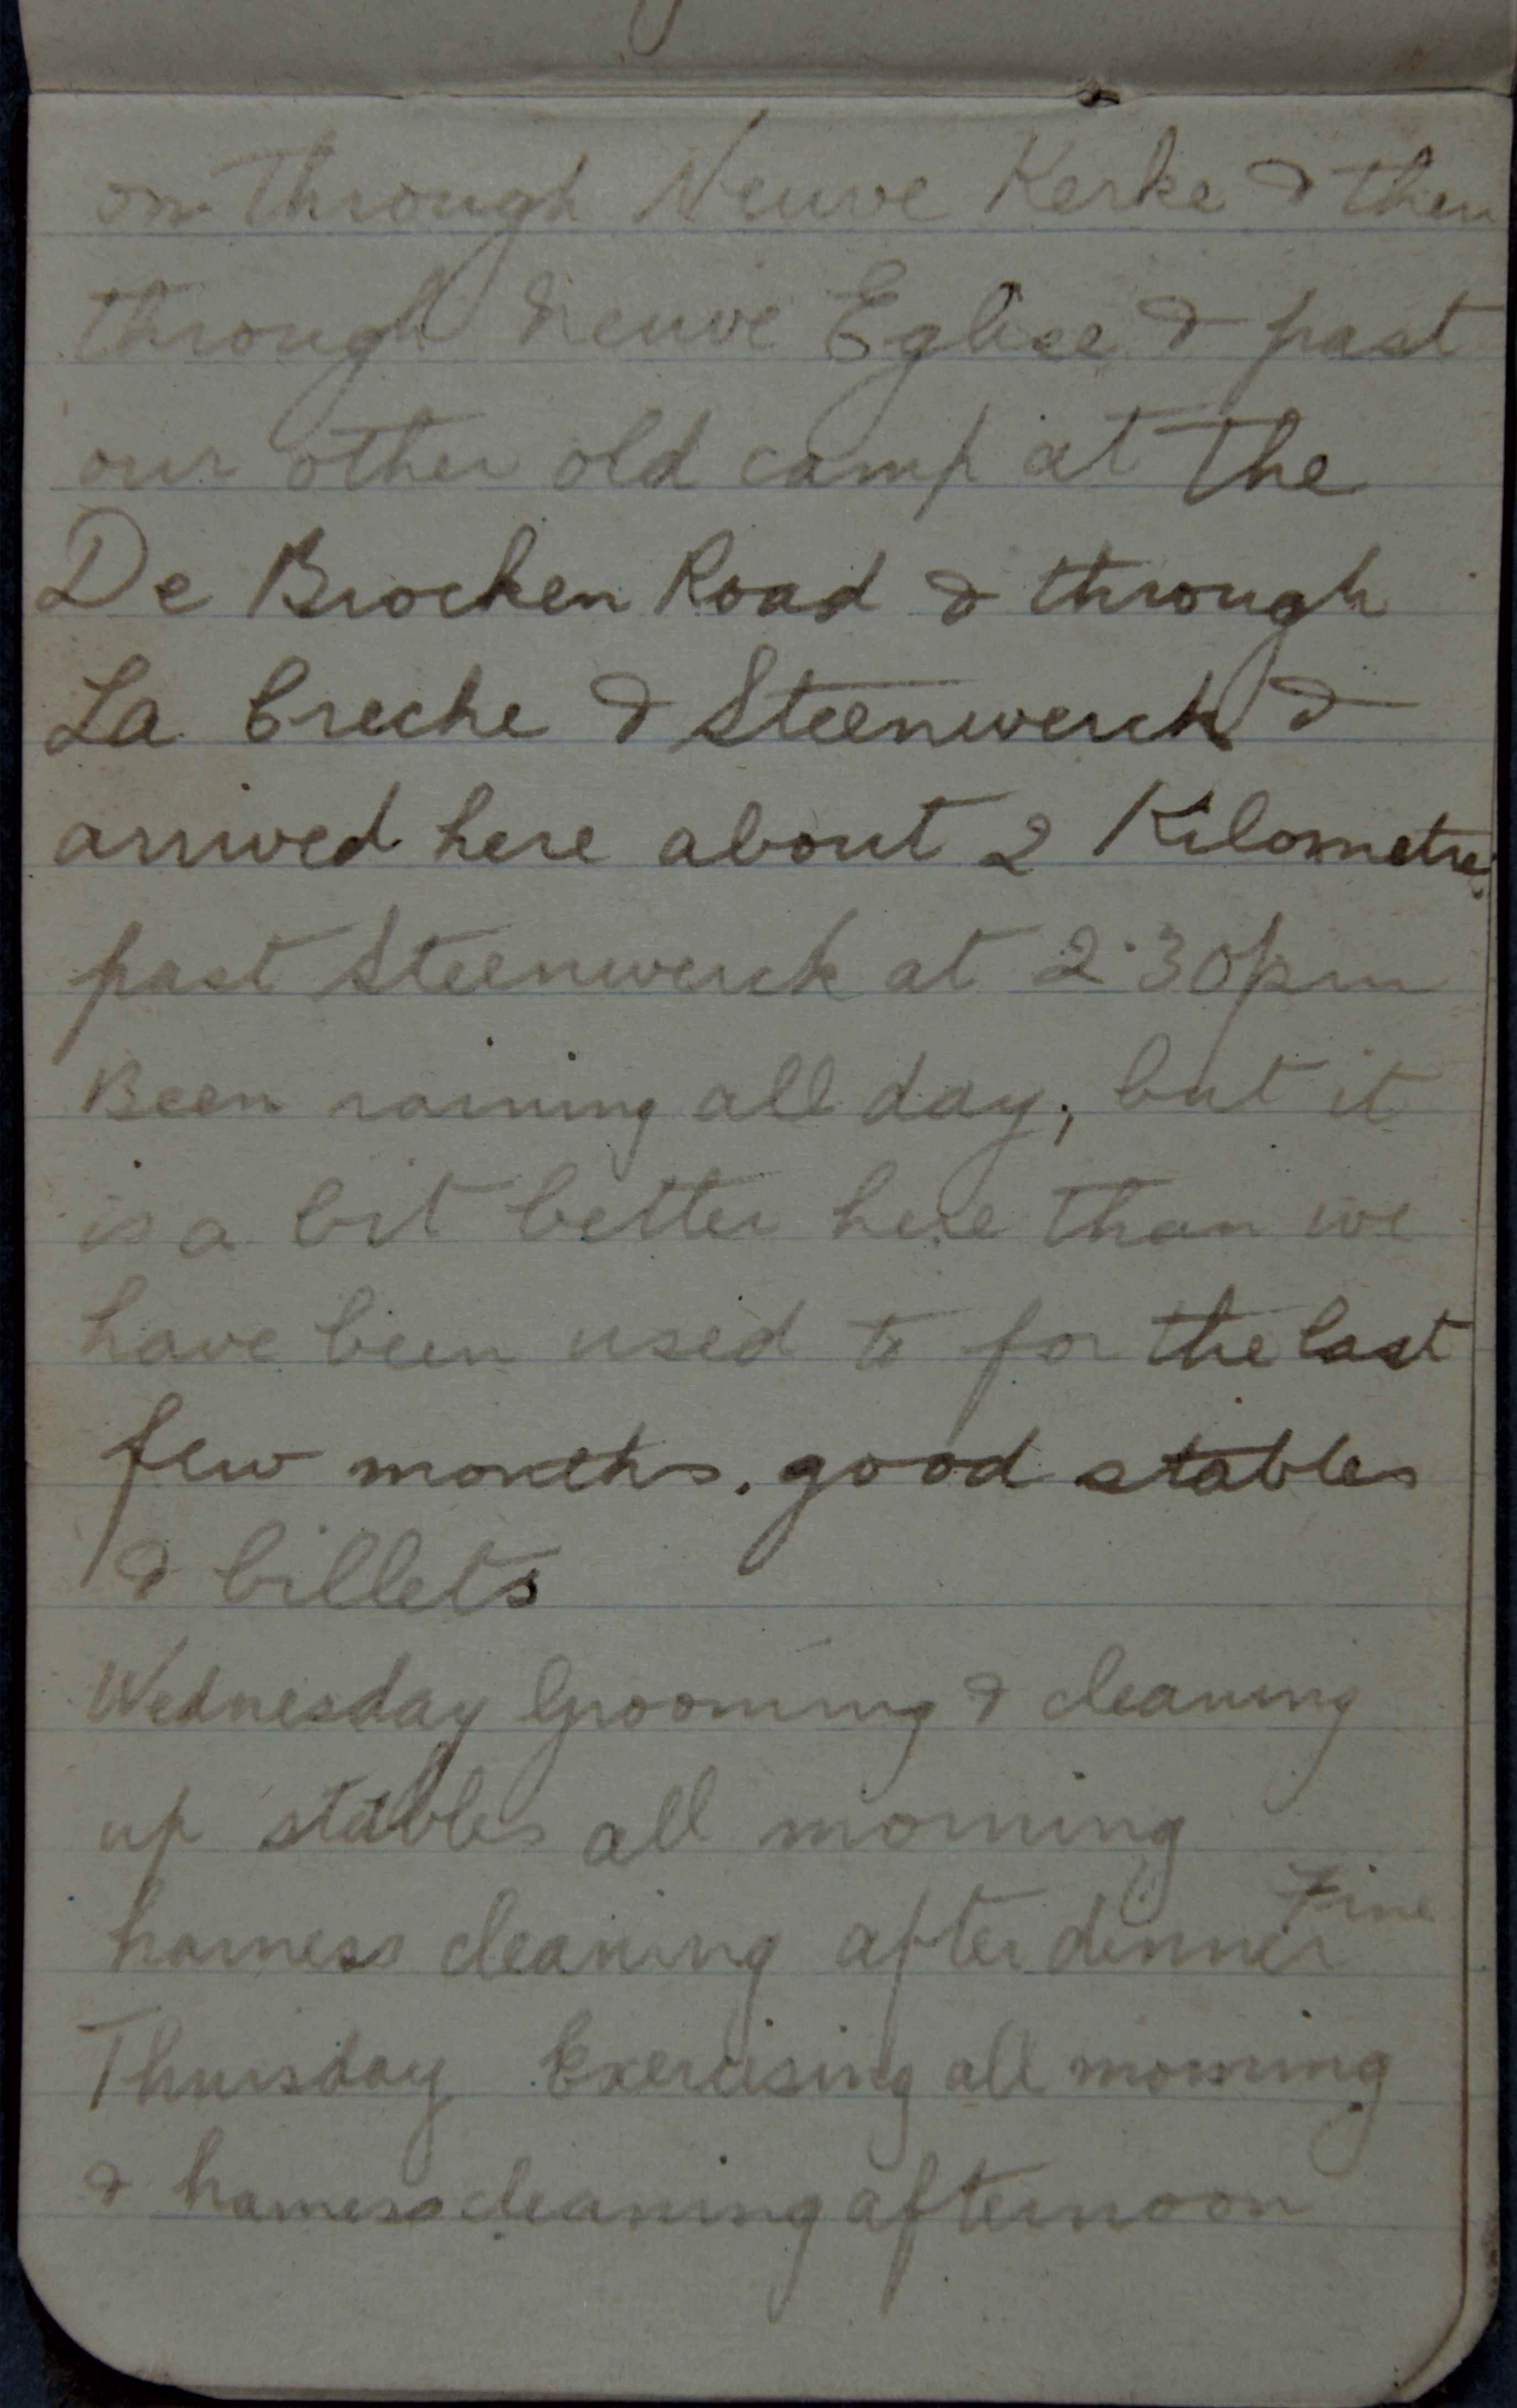 on through Neuve Kerke & then
through neuve Eglise & past
our other old camp at the
De Brocken Road & through
La Creche & Steenwerck &
arrived here about 2 Kilometres
past Steenwerck at 2.30pm
Been raining all day, but it
is a bit better here than we
have been used to for the last
few months. good stables
& billets
Wednesday Grooming & cleaning
up stables all morning
Fine
harness cleaning after dinner
Thursday Exercising all morning
& harness cleaning afternoon